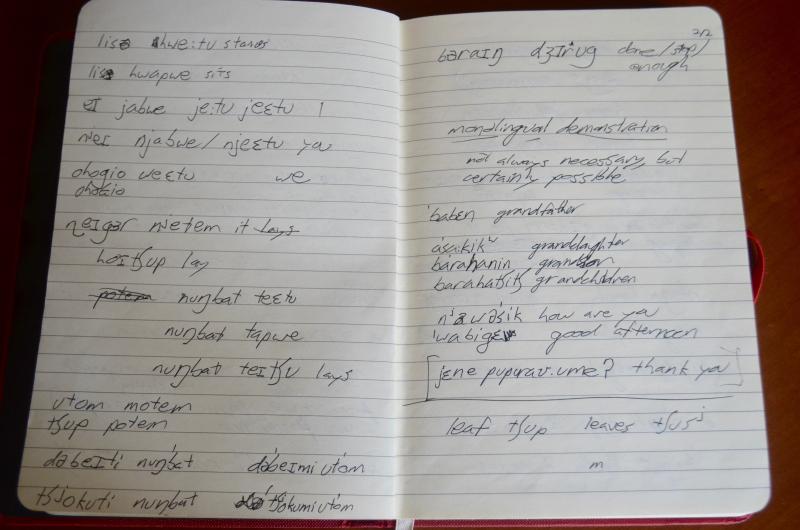 lisə hwe:tu stands
lisə hwapwe sits
eɪ jabwe je:tu jeɛtu I
nʲeɪ njabwe/njeɛtu you
ohogio ueɛtu we
ohokio
neigər nʲetem it lays
hoɪtʃup lay
potem nuŋbat teɛtu
nuŋbat tapwe
nuŋbat teɪtʃu lays
utom motem
tʃup potem
dəbeɪti nuŋbat dəbeɪmi utom
tʃokuti nuŋbat tʃokumi utom
2/2
bəraɪŋ dʒɪrug done/stop/
enough
monolingual demonstration
not always necessary, but
certainly possible
ˈbaben grandfather
asakikʷ granddaughter
bərahanin grandson
barahatʃitʃ grandchildren
nʲəwəsik how are you
ˈwabige good afternoon
[jene pupurav.ume? thank you]
leaf tʃup leaves tʃusʲ
m